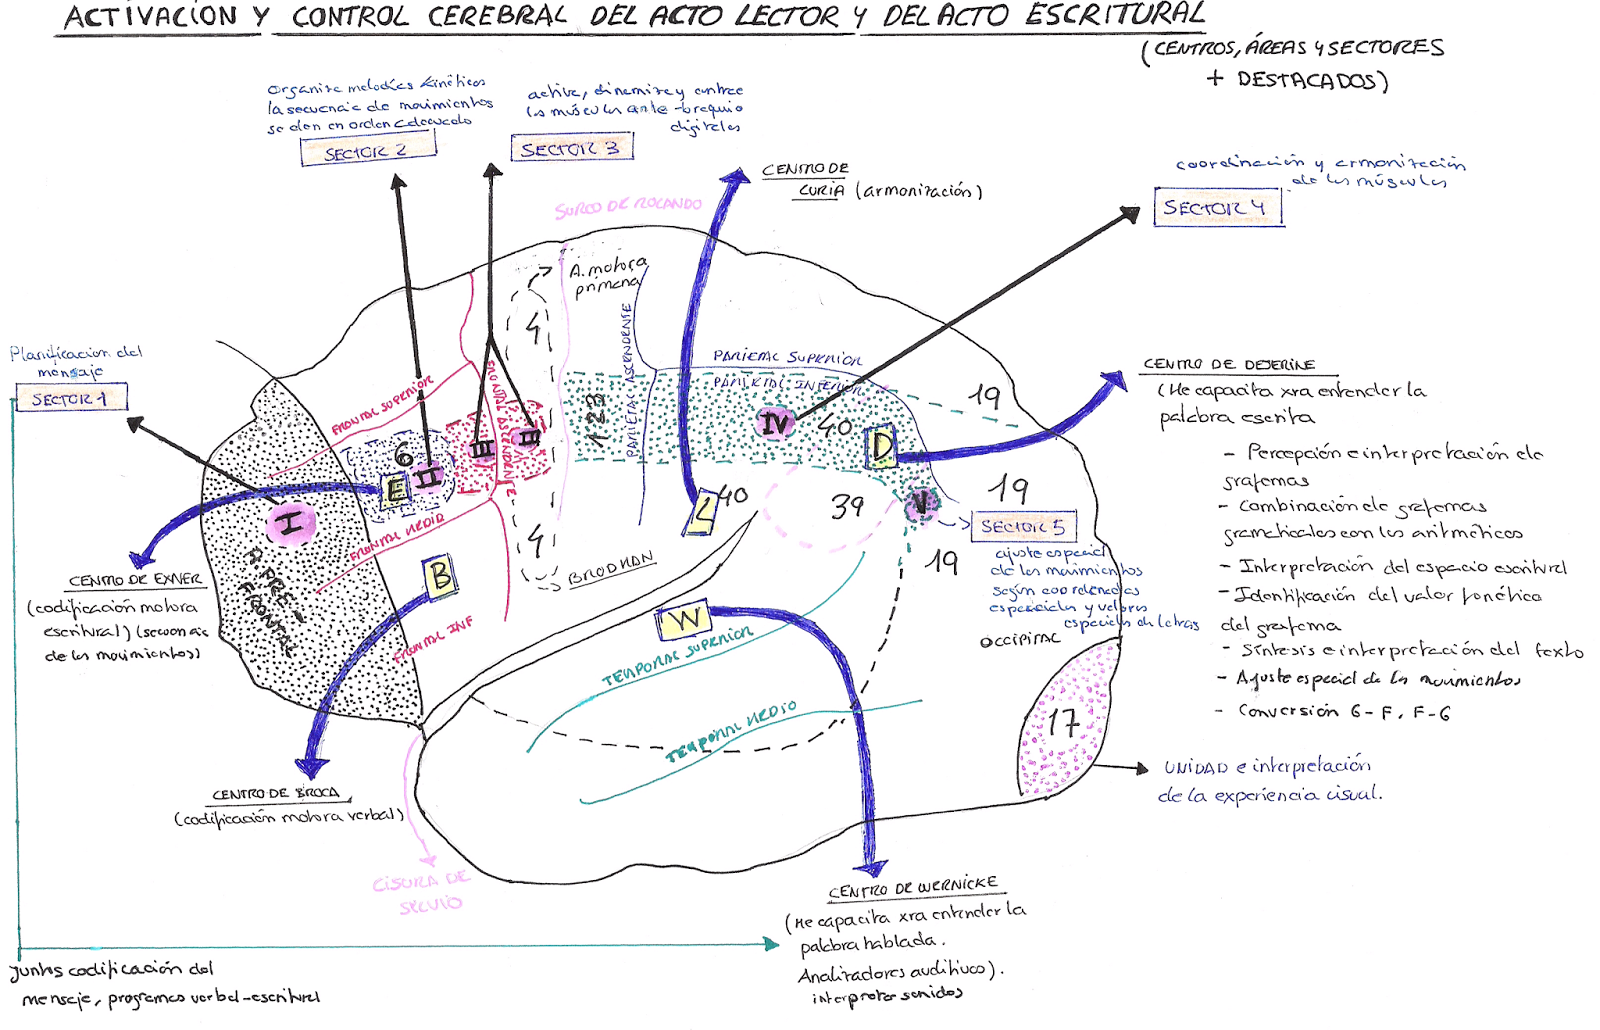 ACTIVACIÓN Y CONTROL CEREBRAL DEL ACTO LECTOR Y DEL ACTO ESCRITURAL
(CENTROS, ÁREAS Y SECTORES
+ DESTACADOS)
organiza melodías kinéticas
la secuencia de movimientos
se den en orden adecuado
SECTOR 2
activa, dinamiza y controe
los músculos ante-braquio
digitales
SECTOR 3
CENTRO DE
LURIA (armonización)
coordinación y armonización
de los músculos
SECTOR 4
SURCO DE ROLANDO
A. motora
primaria
Planificación del
mensaje
SECTOR 1
FRONTAL SUPERIOR
FRONTAL ASCENDENTE
4
1-2-3
PARIETAL ASCENDENTE
PARIETAL SUPERIOR
PARIETAL INFERIOR
19
CENTRO DE DEJERINE
(Me capacita xra entender la
palabra escrita
- Percepción e interpretación de
grafemas
- Combinación de grafemas
gramaticales con los aritméticos
- Interpretación del espacio escritural
- Identificación del valor fonético
del grafema
- Síntesis e interpretación del texto
- Ajuste espacial de los movimientos
- Conversión G-F, F-G
6
E
II
III
III
IV
40
D
I
FRONTAL MEDIO
4
L
40
39
V
19
SECTOR 5
ajuste espacial
de los movimientos
según coordenadas
espaciales y valores
espaciales de letras
19
A. PRE-
FRONTAL
B
BRODMAN
CENTRO DE EXNER
(codificación motora
escritural) (secuencia
de los movimientos)
FRONTAL INF
W
TEMPORAL SUPERIOR
OCCIPITAL
TEMPORAL MEDIO
17
UNIDAD e interpretación
de la experiencia visual.
CENTRO DE BROCA
(codificación motora verbal)
CISURA DE
SILVIO
CENTRO DE WERNICKE
(Me capacita xra entender la
palabra hablada.
Analizadores auditivos).
interpretar sonidos
Juntos codificación del
mensaje, programas verbal-escritural